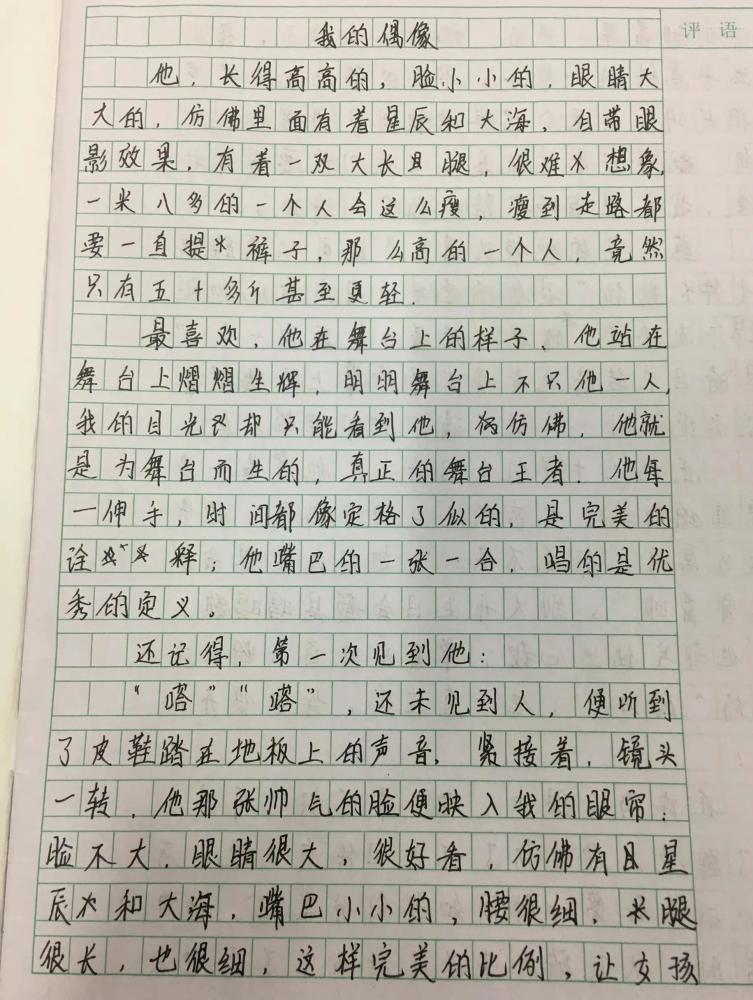 评语
我的偶像
他，长得高高的，脸小小的，眼睛大
大的，仿佛里面有着星辰和大海，自带眼
影效果，有着一双大长腿，很难想象，
一米八多的一个人会这么瘦，瘦到走路都
要一直提裤子，那么高的一个人，竟然
只有五十多斤甚至更轻．
最喜欢，他在舞台上的样子，他站在
舞台上熠熠生辉，明明舞台上不只他一人，
我的目光却只能看到他，仿佛，他就
是为舞台而生的，真正的舞台王者．他每
一伸手，时间都像定格了似的，是完美的
诠释；他嘴巴的一张一合，唱的是优
秀的定义。
还记得，第一次见到他：
“嗒”“嗒”，还未见到人，便听到
了皮鞋踏在地板上的声音，紧接着，镜头
一转，他那张帅气的脸便映入我的眼帘：
脸不大，眼睛很大，很好看，仿佛有星
辰和大海，嘴巴小小的，腰很细，长腿
很长，也很细，这样完美的比例，让女孩